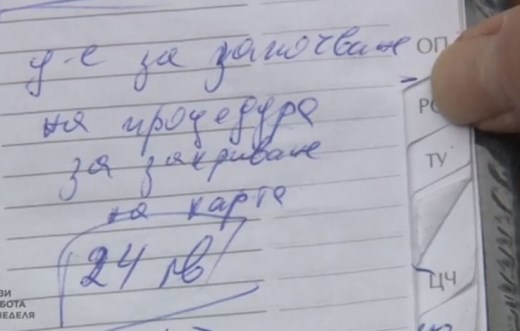 у-е за започване
на процедура
за закриване
на карта
24 лв
ОП
ТУ
ЦЧ